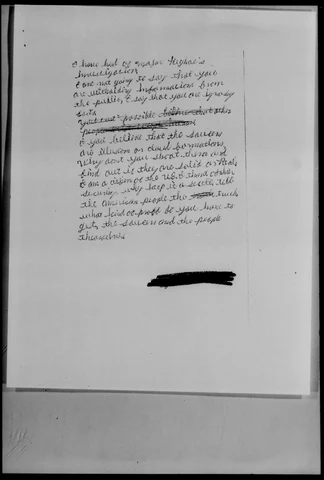 I have had of Major Keyhoe's
investigation
I am not going to say that you
are witholding information from
the public, I say that you are ignoring
facts
if you believe that the saucers
are illusion or cloud formations,
why dont you shoot them and
find out is they are solid or not,
I am a citizen of the U.S.
security why keep it a secret, tell
the American people the truth
what kind of proof do you have to
get, the saucers and the people
themselves